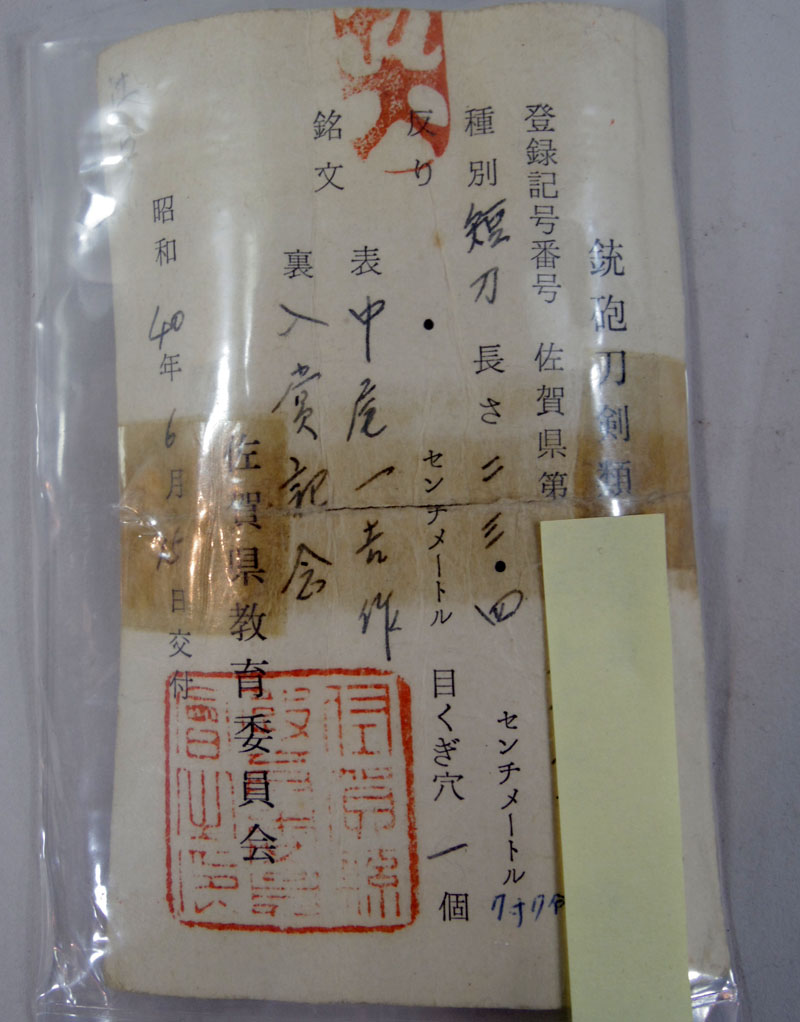 銃砲刀剣類
登録記号番号 佐賀県第
種別 短刀 長さ 二三・四 センチメートル
7寸7分
反り ・ センチメートル 目くぎ穴 一 個
銘文 表 中尾一吉作
裏 入賞記念
昭和40年6月15日交付
佐賀県教育委員会